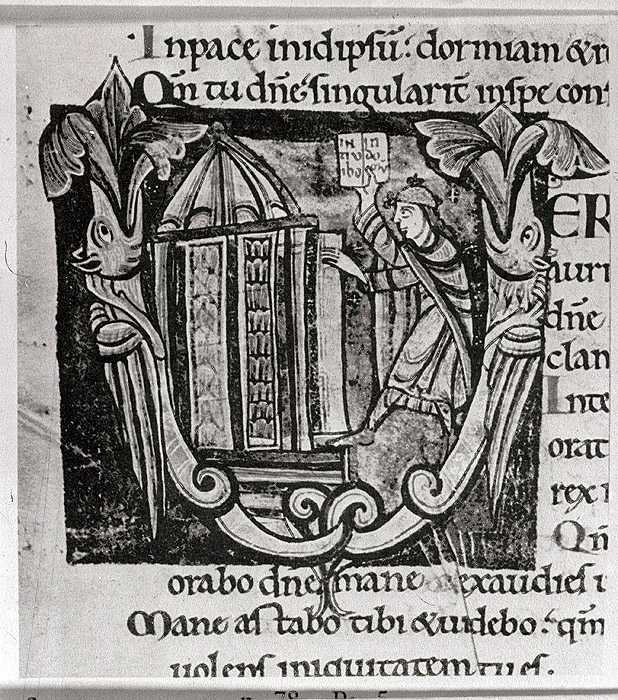 In pace inidipsū: dormiam & re
Qm̄ tu dn̄e singularit̄ inspe con
IN IN
TRO DO
IBO SER
ER
auri
dn̄e
clam
Inte
orat
rex
Qm̄
orabo dn̄e mane exaudies
Mane astabo tibi & videbo: qm̄
volens iniquitatem tu es.